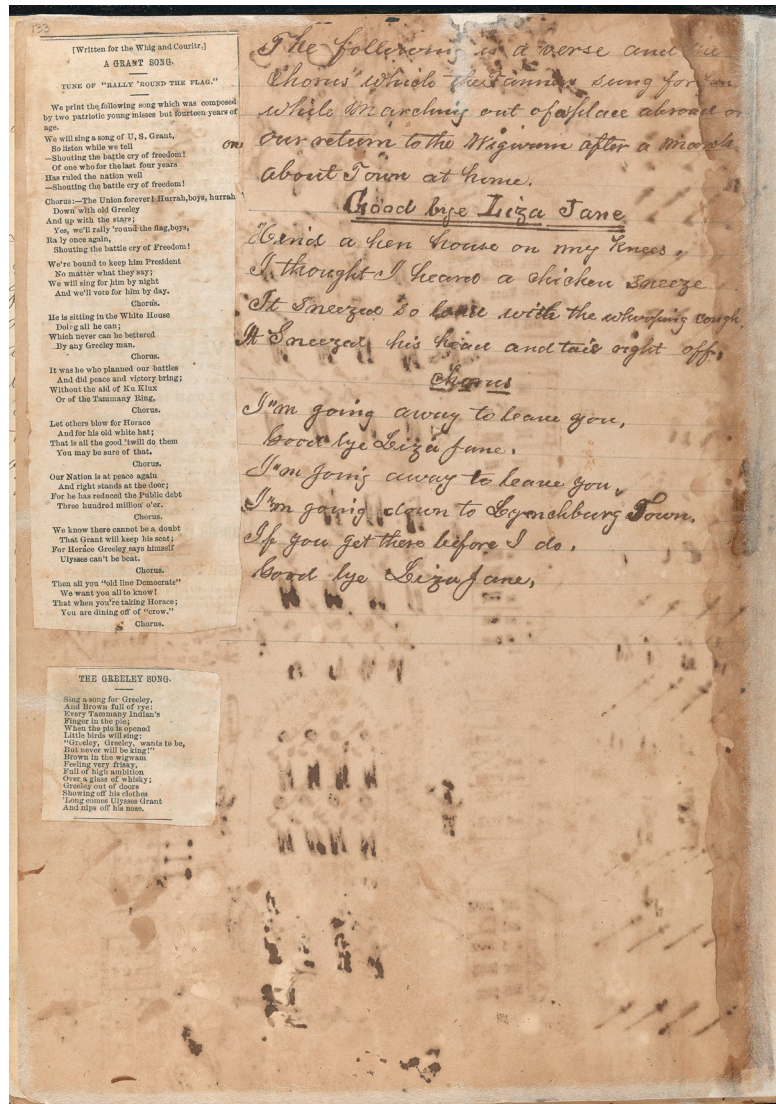 133
[Written for the Whig and Couritr.]
A GRANT SONG.
TUNE OF "RALLY 'ROUND THE FLAG."
We print the following song which was composed
by two patriotic young misses but fourteen years of
age.
We will sing a song of U. S. Grant,
So listen while we tell
—Shouting the battle cry of freedom!
Of one who for the last four years
Has ruled the nation well
—Shouting the battle cry of freedom!
Chorus:—The Union forever! Hurrah,boys, hurrah
Down with old Greeley
And up with the stars;
Yes, we'll rally 'round the flag,boys,
Ra ly once again,
Shouting the battle cry of Freedom!
We're bound to keep him President
No matter what they say;
We will sing for him by night
And we'll vote for him by day.
Chorus.
He is sitting in the White House
Doing all he can;
Which never can be bettered
By any Greeley man.
Chorus.
It was he who planned our battles
And did peace and victory bring;
Without the aid of Ku Klux
Or of the Tammany Ring,
Chorus.
Let others blow for Horace
And for his old white hat;
That is all the good 'twill do them
You may be sure of that.
Chorus.
Our Nation is at peace again
And right stands at the door;
For he has reduced the Public debt
Three hundred million o'er.
Chorus.
We know there cannot be a doubt
That Grant will keep his seat;
For Horace Greeley says himself
Ulysses can't be beat.
Chorus.
Then all you "old line Democrats"
We want you all to know!
That when you're taking Horace;
You are dining off of "crow."
Chorus.
THE GREELEY SONG.
Sing a song for Greeley,
And Brown full of rye:
Every Tammany Indian's
Finger in the pie;
When the pie is opened
Little birds will sing:
"Greeley, Greeley, wants to be,
But never will be king!"
Brown in the wigwam
Feeling very frisky,
Full of high ambition
Over a glass of whisky;
Greeley out of doors
Showing off his clothes
'Long comes Ulysses Grant
And nips off his nose.
The following is a verse and the
Chorus which the Tanners sung for
while Marching out of a place abroad or
on our return to the Wigwam after a march
about Town at home.
Good bye Liza Jane
Behind a hen house on my knees,
I thought I heard a chicken sneeze
It sneezed so loud with the whooping cough
It Sneezed his head and tail right off,
Chorus
I'm going away to leave you,
Good bye Liza Jane.
I'm going away to leave you,
I'm going down to Lynchburg Town.
If you get there before I do,
Good bye Liza Jane,